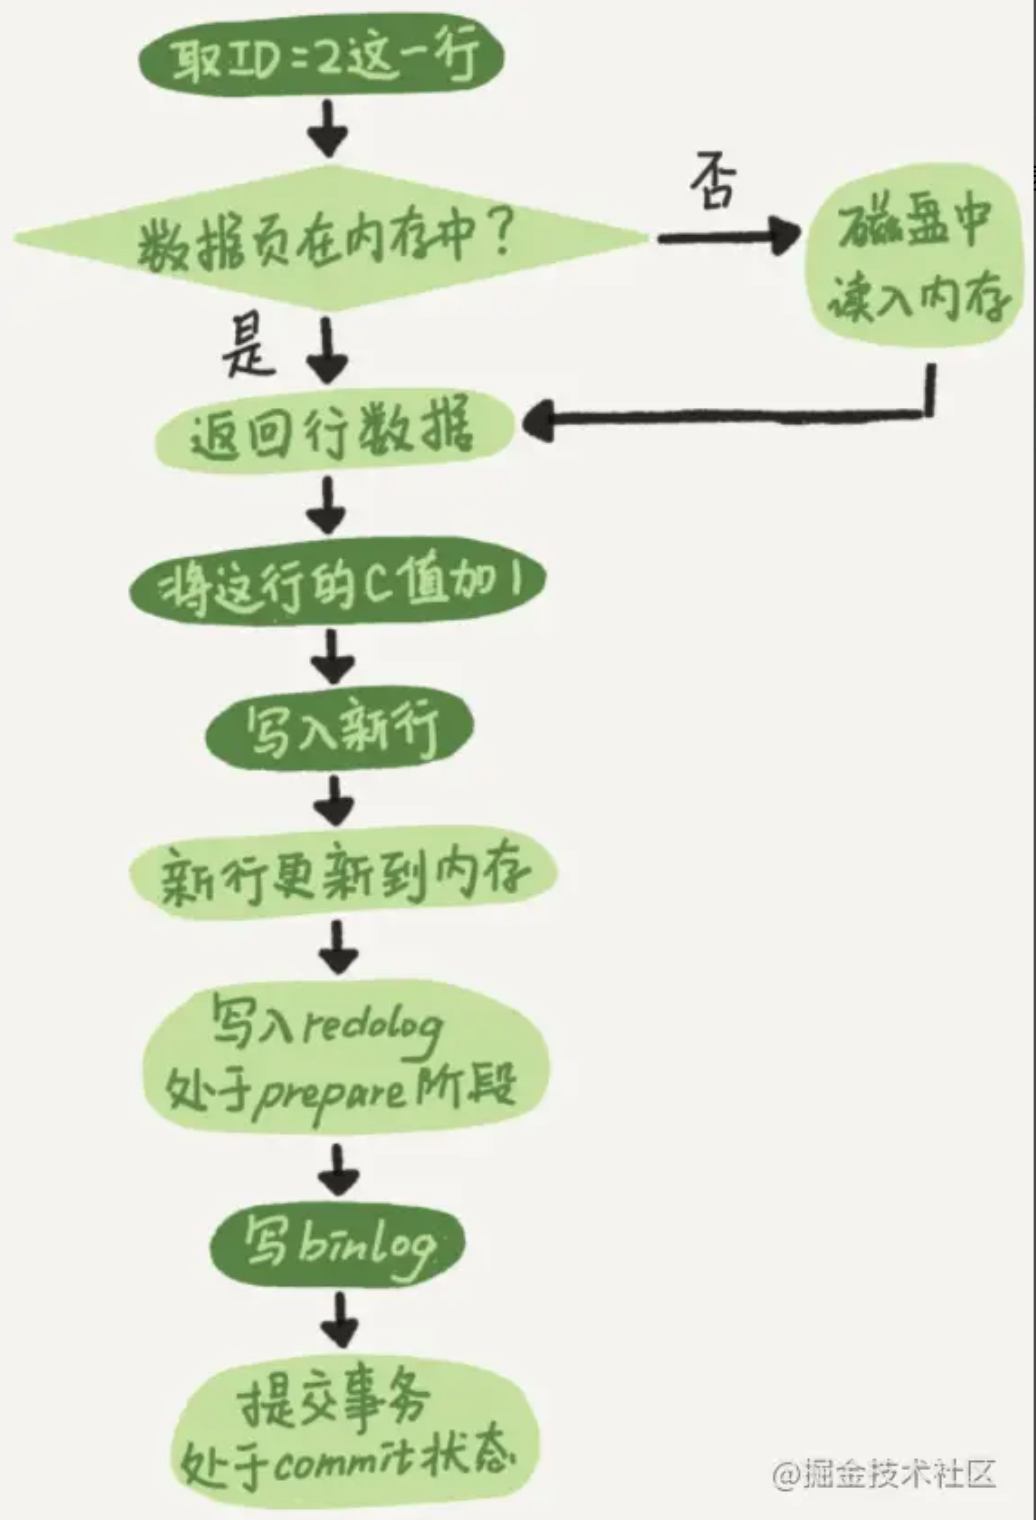 取ID=2这一行
数据页在内存中?
否
磁盘中
读入内存
是
返回行数据
将这行的C值加1
写入新行
新行更新到内存
写入redolog
处于prepare阶段
写binlog
提交事务
处于commit状态
@掘金技术社区